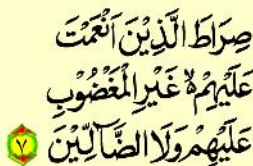 صِرَاطَ الَّذِيْنَ اَنْعَمْتَ
عَلَيْهِمْ ۙ۬ غَيْرِ الْمَغْضُوْبِ
عَلَيْهِمْ وَلَا الضَّآلِّيْنَ ۷